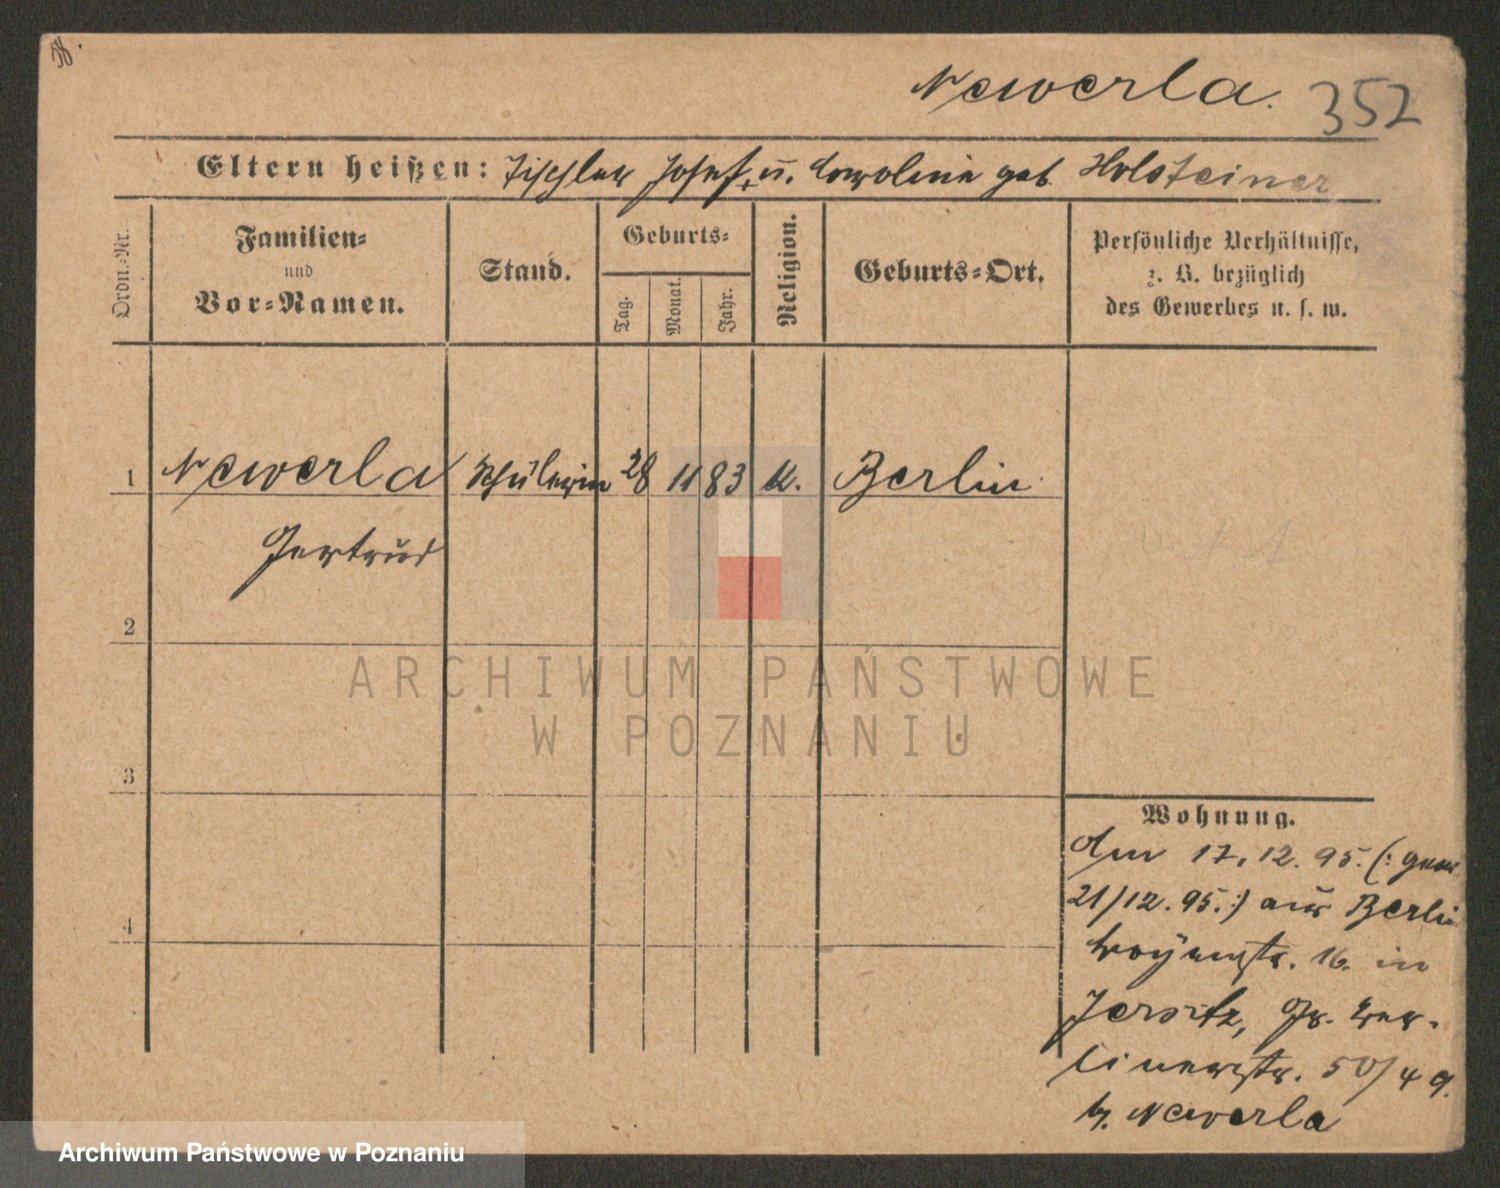 Newerla. 352
Eltern heißen: Tischler Josef u. Karoline geb. Holsteiner
Ordn.-Nr.
Familien-
und
Vor-Namen.
Stand.
Geburts-
Tag.
Monat.
Jahr.
Religion.
Geburts-Ort.
Persönliche Verhältnisse,
z. B. bezüglich
des Gewerbes u. s. w.
1 Newerla Schülerin 28 11 83 K. Berlin
Gertrud
2
3
4
Wohnung.
Am 17.12.95. (: gem
21/12.95. :) aus Berlin
16. in
Jersitz, Gr. Ber-
linerstr. 50/49.
b. Newerla
ARCHIWUM PAŃSTWOWE
W POZNANIU
Archiwum Państwowe w Poznaniu